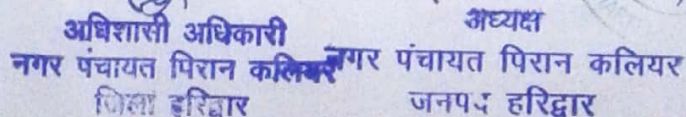 अधिशासी अधिकारी
नगर पंचायत पिरान कलियर
जिला हरिद्वार
अध्यक्ष
नगर पंचायत पिरान कलियर
जनपद हरिद्वार